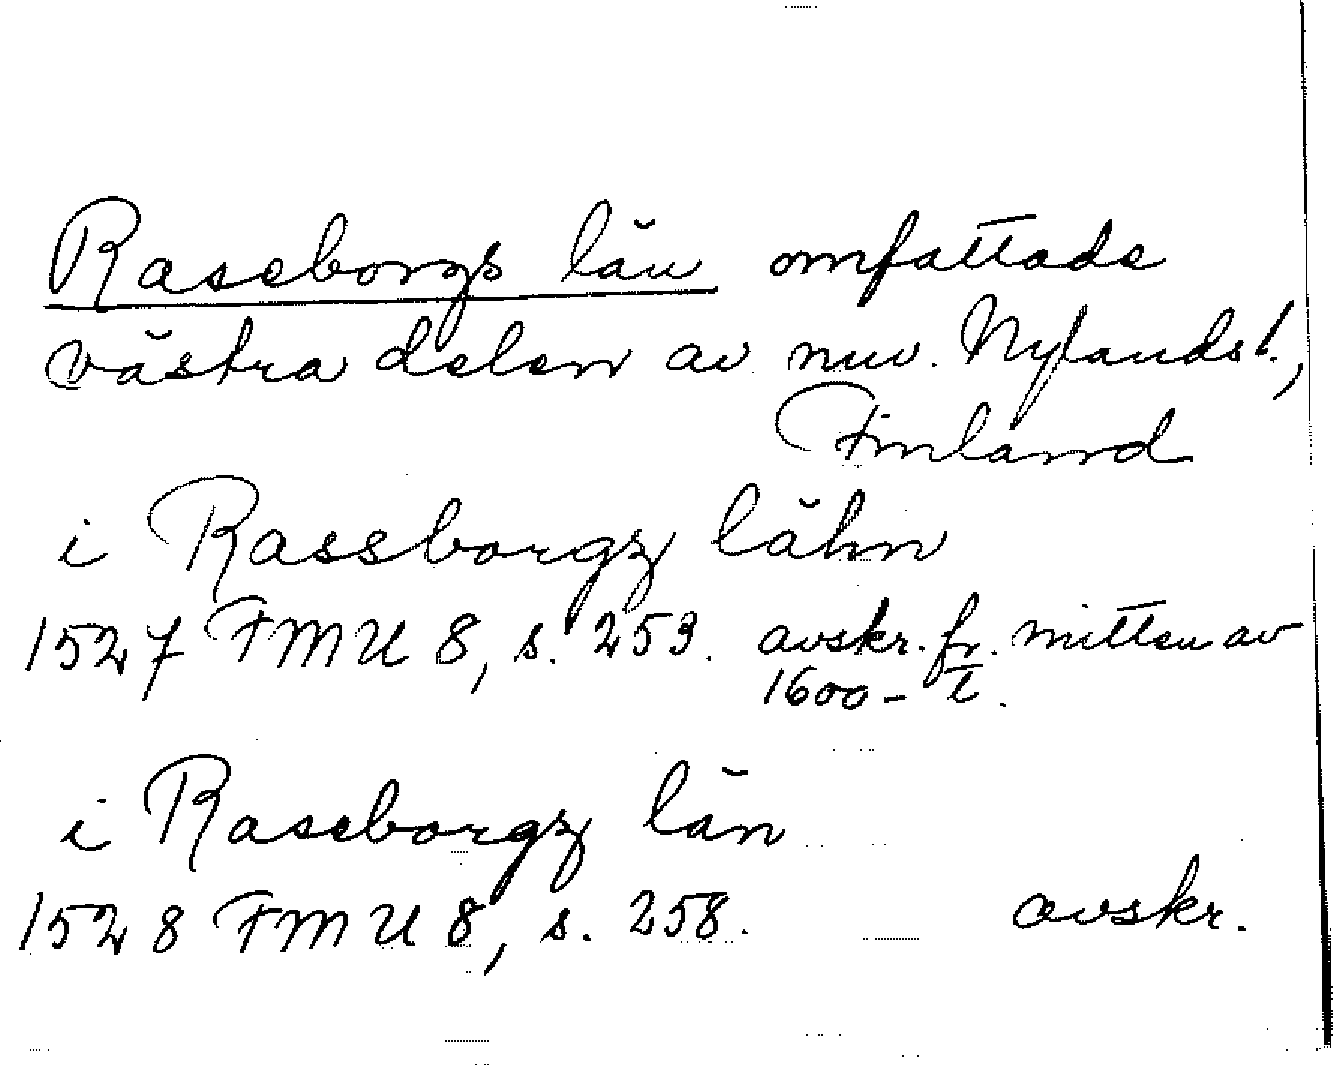 Raseborgs län omfattade
västra delen av nuv. Nylands l.,
Finland
i Rassborgz lähn
1527 FMU 8, s. 253. avskr. fr. mitten av
1600-t.
i Raseborgz län
1528 FMU 8, s. 258. avskr.